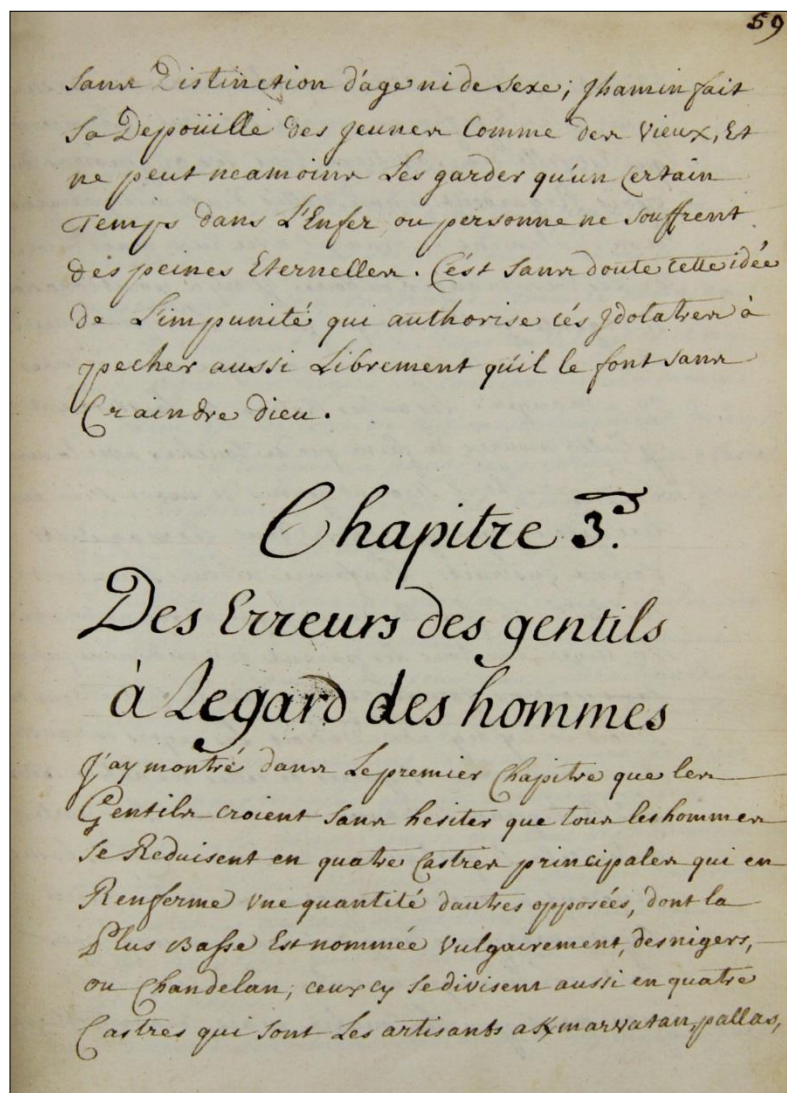 59
sans Distinction d'age ni de sexe; Jhamin fait
sa Depoüille des jeunes Comme des vieux, Et
ne peut neamoins Les garder qu'un Certain
Temps dans L'Enfer ou personne ne souffrent
des peines Eternelles. C'ést sans doute cette idée
de L'impunité qui authorise cés Jdolatres à
pecher aussi Librement qu'il le font sans
Craindre Dieu.
Chapitre 3.e
Des Erreurs des gentils
à Legard des hommes
J'ay montré dans Le premier Chapitre que les
Gentils croient sans hesiter que tous les hommes
se Reduisent en quatre Castres principales qui en
Renferme une quantité d'autres opposées, dont la
Plus Basse Est nommée vulgairement, des nigers,
ou Chandelan; ceux cy se divisent aussi en quatre
Castres qui sont Les artisants pallas,